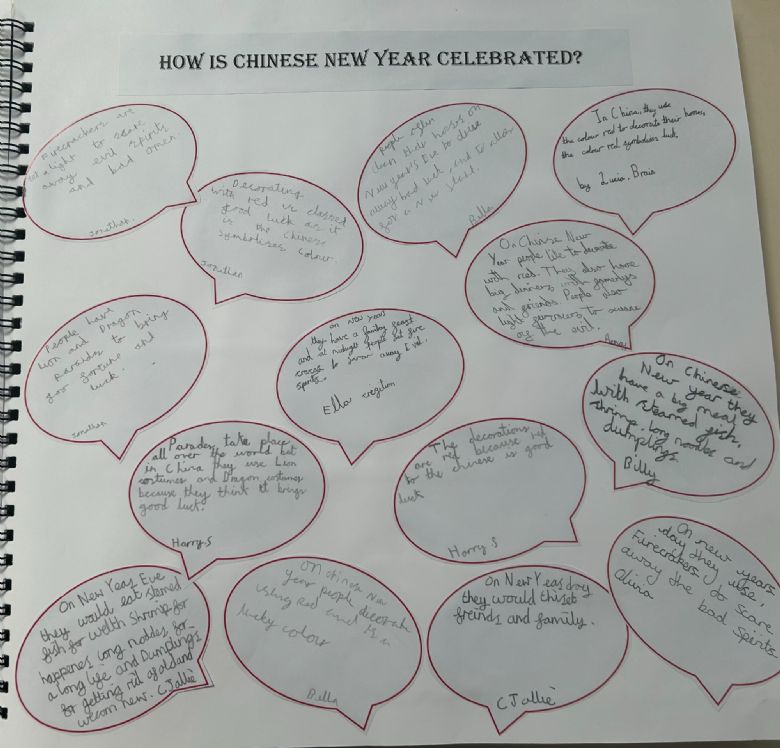 HOW IS CHINESE NEW YEAR CELEBRATED?
Firecrackers are
set alight to scare
away evil spirits
and bad omen.
Jonathan.
Decorating
with red is classed
good luck as it
is the chinese
symbolises colour.
Jonathan
people often
clean their houses on
New year's Eve to drive
away bad luck and to allow
for a new start.
Bella
In China, they use
the colour red to decorate their homes,
the colour red symbolises luck.
by Lucia. Brais
On Chinese New
Year people like to decorate
with red. They also have
big dinners with
and friends People also
light to
of the evil.
People have
Lion and Dragon
to bring
good fortune and
luck.
Jonathan
on new years
they have a family feast
and at midnight people
to away Evil
spirits.
Ella
On Chinese
New year they
have a big meal
with steamed fish,
shrimp, long noodes and
dumplings
Billy
Parades take place
all over the world but
in China they use Lion
costumes and Dragon costumes
because they think it brings
good luck.
Harry S
The decorations
are red because
to the chinese is good
luck
Harry S
On New Yeas Eve
they would eat stemed
fish for welth Shrimp for
happenes long noddes for
a long life and Dumplings
for getting rid of old and
wecom new. C Jallie
On chinese New
year people decorate
using Red and it is a
lucky colour
Bella
On New Yeas day
they would
freinds and family.
C Jallie
On new years
day they use,
Firecrakers to scare
away the bad spirits